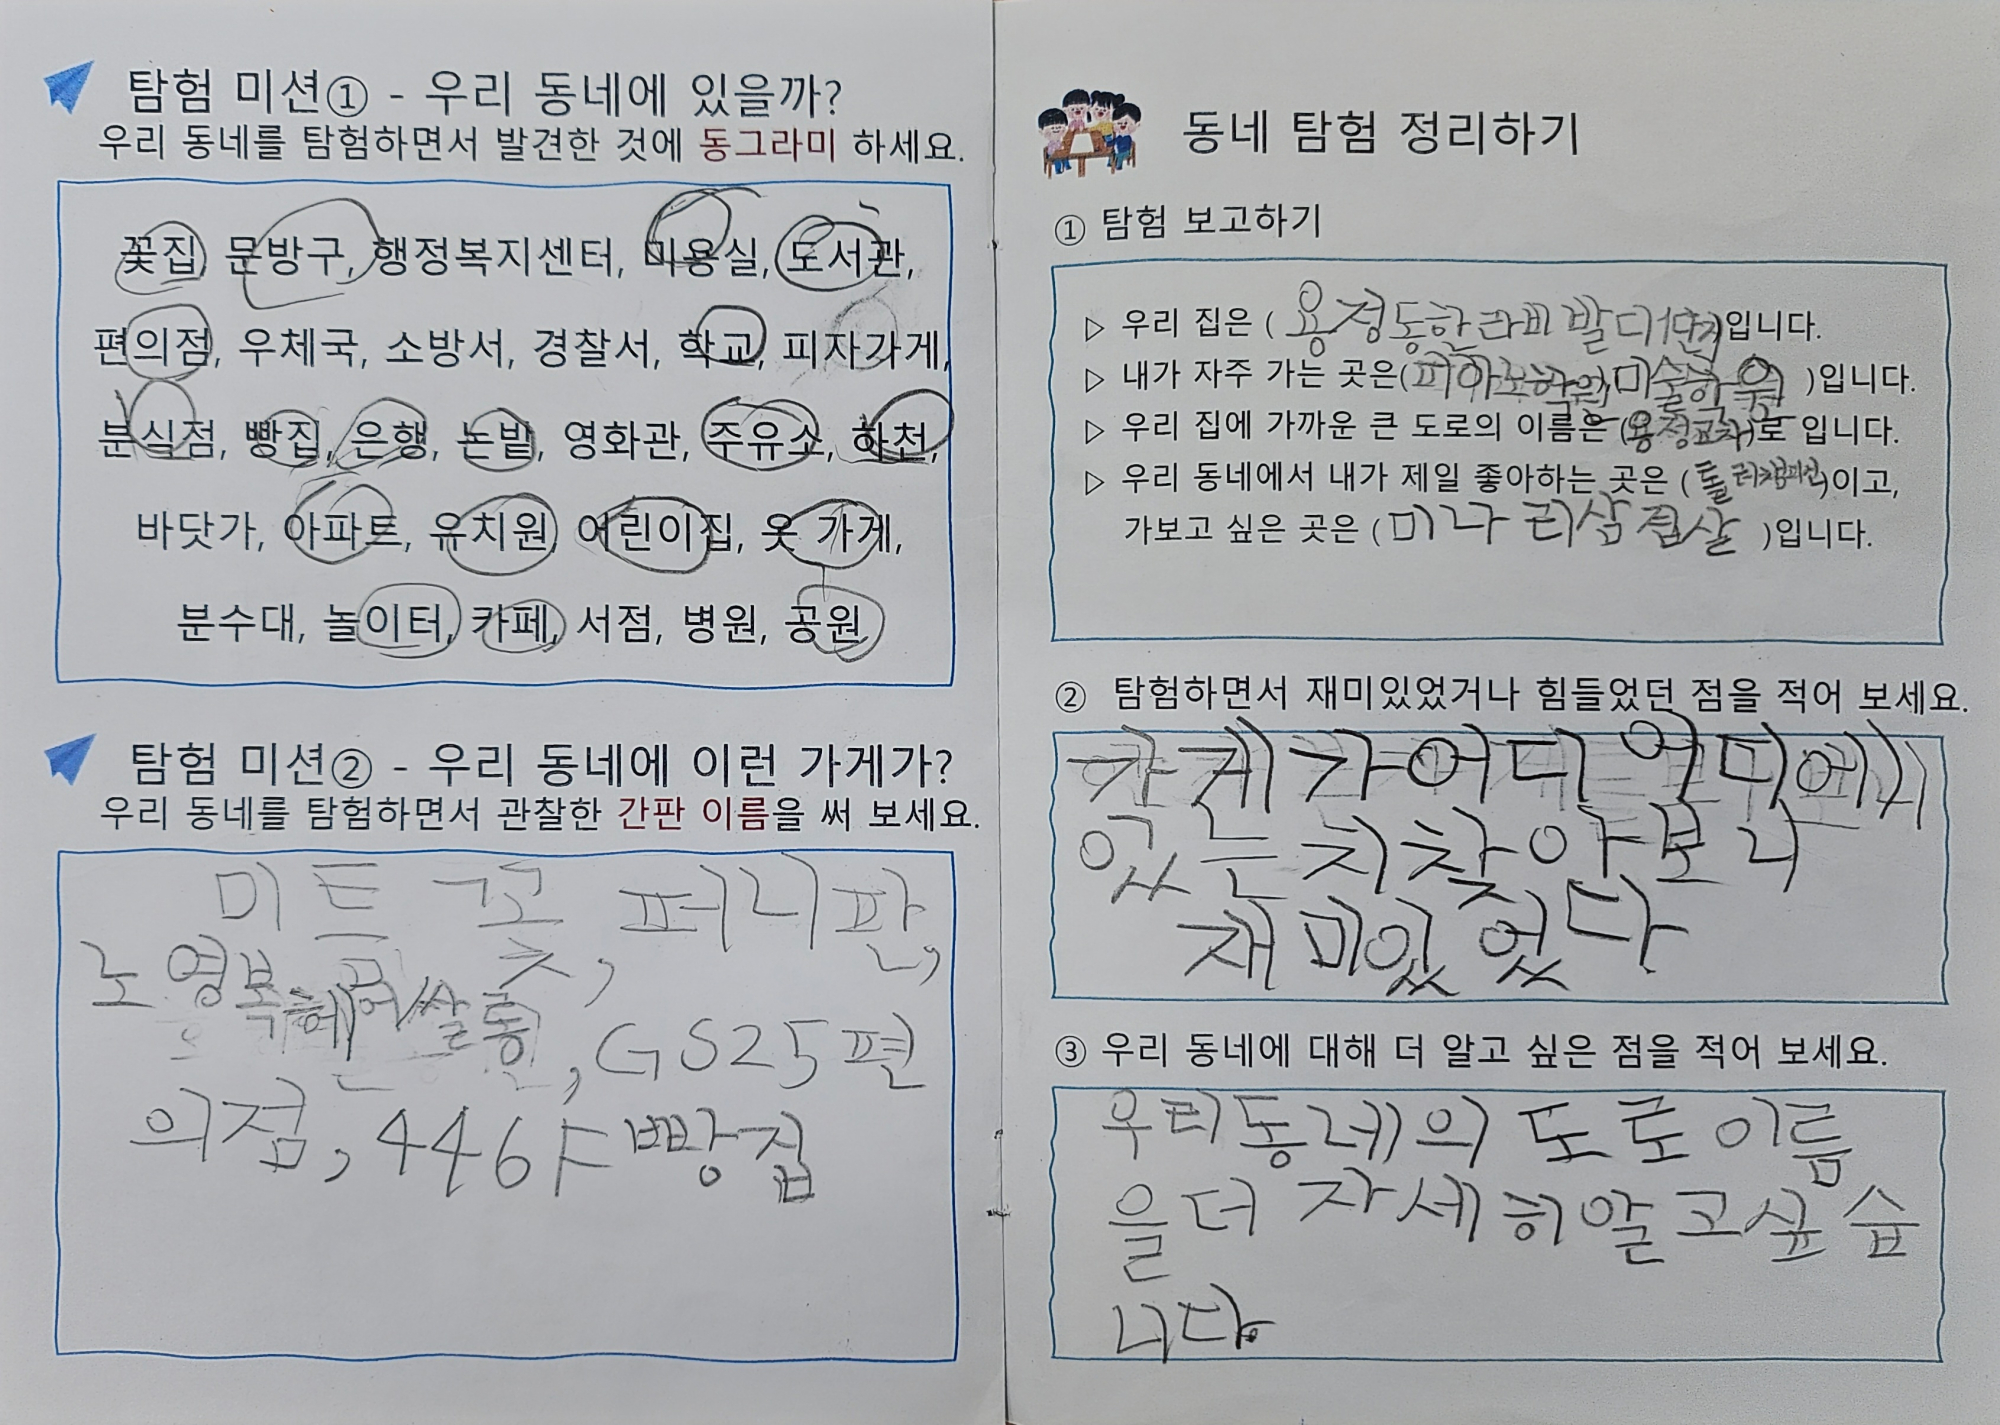 탐험 미션① - 우리 동네에 있을까?
우리 동네를 탐험하면서 발견한 것에 동그라미 하세요.
꽃집, 문방구, 행정복지센터, 미용실, 도서관,
편의점, 우체국, 소방서, 경찰서, 학교, 피자가게,
분실점, 빵집, 은행, 논밭, 영화관, 주유소, 하천,
바닷가, 아파트, 유치원, 어린이집, 옷 가게,
분수대, 놀이터, 카페, 서점, 병원, 공원
탐험 미션② - 우리 동네에 이런 가게가?
우리 동네를 탐험하면서 관찰한 간판 이름을 써 보세요.
미트 꼬, 퍼니판,
노영복헤어살롱, GS25편
의점, 446 빵집
동네 탐험 정리하기
① 탐험 보고하기
▷ 우리 집은 ( 용정동한라비발디1단지)입니다.
▷ 내가 자주 가는 곳은(피아노학원,미술학원 )입니다.
▷ 우리 집에 가까운 큰 도로의 이름은 (용정교차)로 입니다.
▷ 우리 동네에서 내가 제일 좋아하는 곳은 ( )이고,
가보고 싶은 곳은 ( 미나리삼겹살 )입니다.
② 탐험하면서 재미있었거나 힘들었던 점을 적어 보세요.
가게가어디 위에
있는지찾아보니
재미있었다
③ 우리 동네에 대해 더 알고 싶은 점을 적어 보세요.
우리동네의 도로이름
을더 자세히알고싶습
니다.